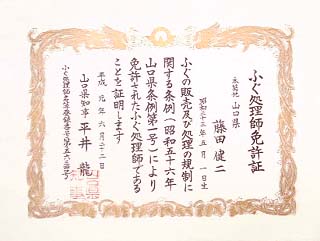 ふぐ処理師免許証
本籍地 山口県
藤田健二
昭和三十三年五月一日生
ふぐの販売及び処理の規制に
関する条例(昭和五十六年
山口県条例第一号)により
免許されたふぐ処理師である
ことを証明します
平成元年六月二十二日
山口県知事 平井龍